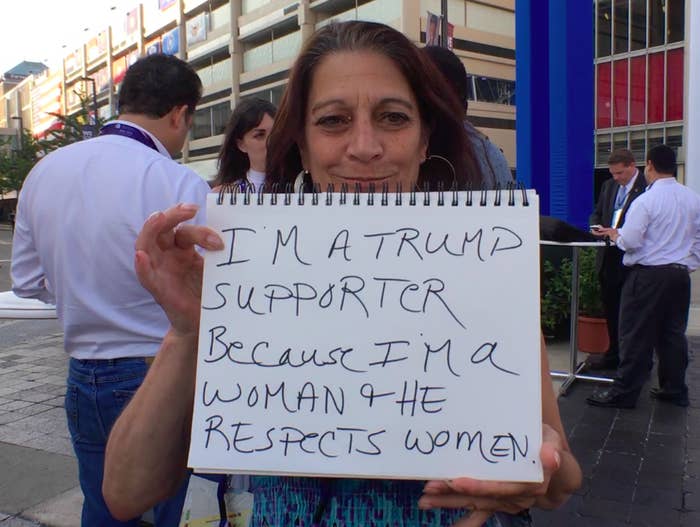 I'M A TRUMP
SUPPORTER
Because I'M a
WOMAN & HE
RESPECTS WOMEN.